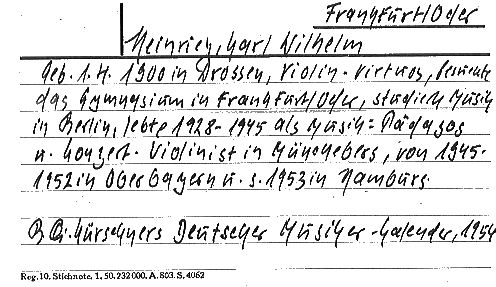 Frankfurt/Oder
Heinrich, Karl Wilhelm
geb. 1.4. 1900 in Drossen, Violin-Virtuos, besuchte
das Gymnasium in Frankfurt/Oder, studierte Musik
in Berlin, lebte 1928-1945 als Musik=Pädagog
u. Konzert-Violinist in Müncheberg, von 1945-
1952 in Oberbayern u. s. 1953 in Hamburg.
Kürschners Deutscher Musiker-Kalender, 1954
Reg. 10. Stichnote. 1. 50. 232 000. A. 803. S. 4062